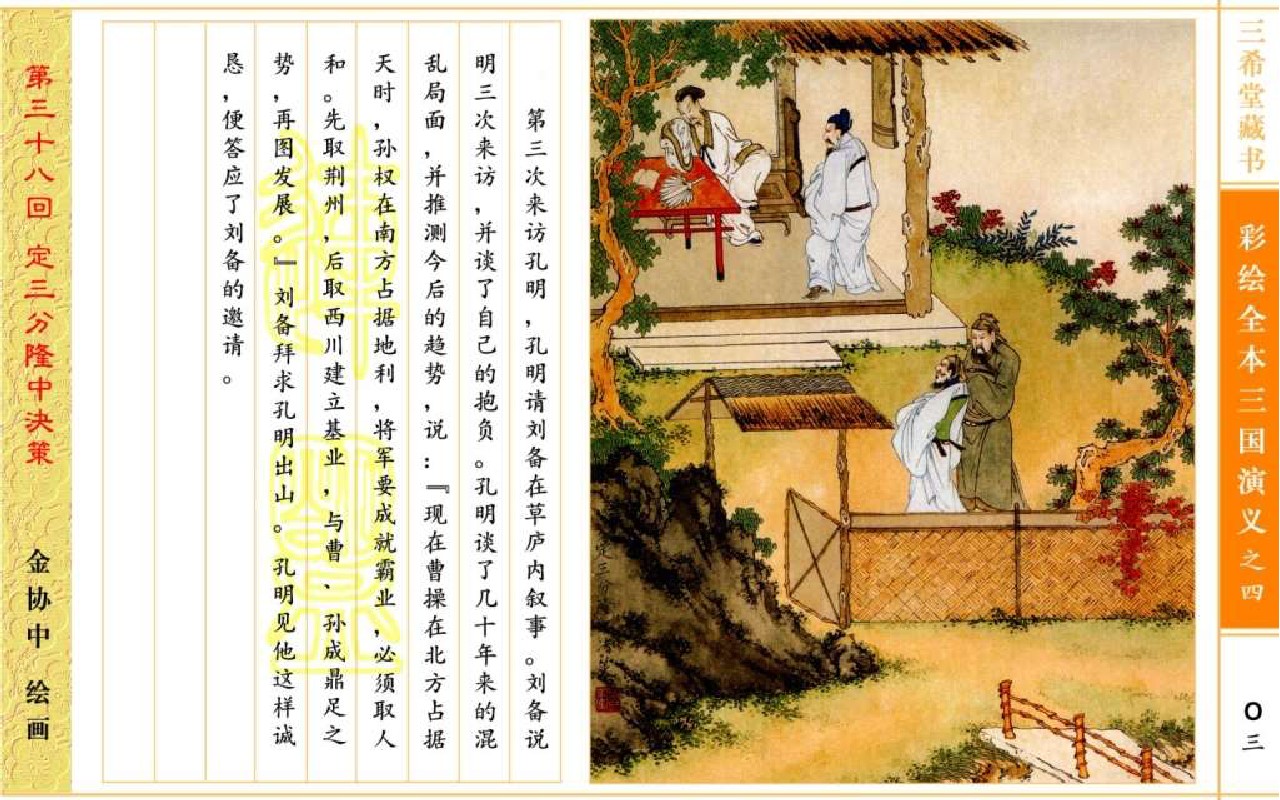 三希堂藏书
彩绘全本三国演义之四
〇三
第三次来访孔明，孔明请刘备在草庐内叙事。刘备说
明三次来访，并谈了自己的抱负。孔明谈了几十年来的混
乱局面，并推测今后的趋势，说：『现在曹操在北方占据
天时，孙权在南方占据地利，将军要成就霸业，必须取人
和。先取荆州，后取西川建立基业，与曹、孙成鼎足之
势，再图发展。』刘备拜求孔明出山。孔明见他这样诚
恳，便答应了刘备的邀请。
第三十八回 定三分隆中决策
金协中 绘画